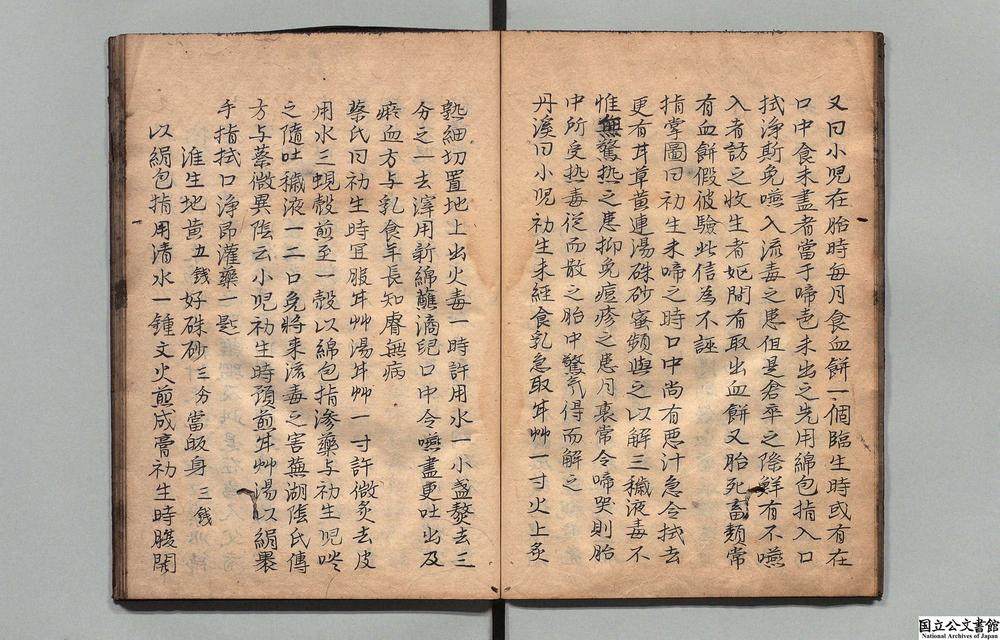 又曰小児在胎時毎月食血餅一個臨生時或有在
口中食未尽者當于啼声未出之先用綿包指入口
拭浄斯免嚥入流毒之患但是倉卒之際鮮有不嚥
入者訪之收生者如間有取出血餅又胎死畜類常
有血餅假彼驗此信為不誣
指掌圖曰初生未啼之時口中尚有悪汁急令拭去
更有甘草黄連湯硃砂蜜頻與之以解三穢液毒不
惟無驚热之患抑免痘疹之患月裏常令啼哭則胎
中所受热毒從而散之胎中驚氣得而解之
丹溪曰小児初生未経食乳急取甘艸一寸火上炙
熟細切置地上出火毒一時許用水一小盞熬去三
分之一去滓用新綿蘸滴児口中令嚥盡更吐出及
瘀血方与乳食年長知膚無病
蔡氏曰初生時宜服甘艸湯甘艸一寸許微炙去皮
用水三蜆殼煎至一殼以綿包指滲藥与初生児吮
之隨吐穢液一二口免将来流毒之害蕪湖陰氏傳
方与蔡微異陰云小児初生時預煎甘艸湯以絹裹
手指拭口浄即灌藥一匙
淮生地黄五錢好硃砂三分當皈身三錢
以絹包指用清水一鍾文火煎成膏初生時腹開